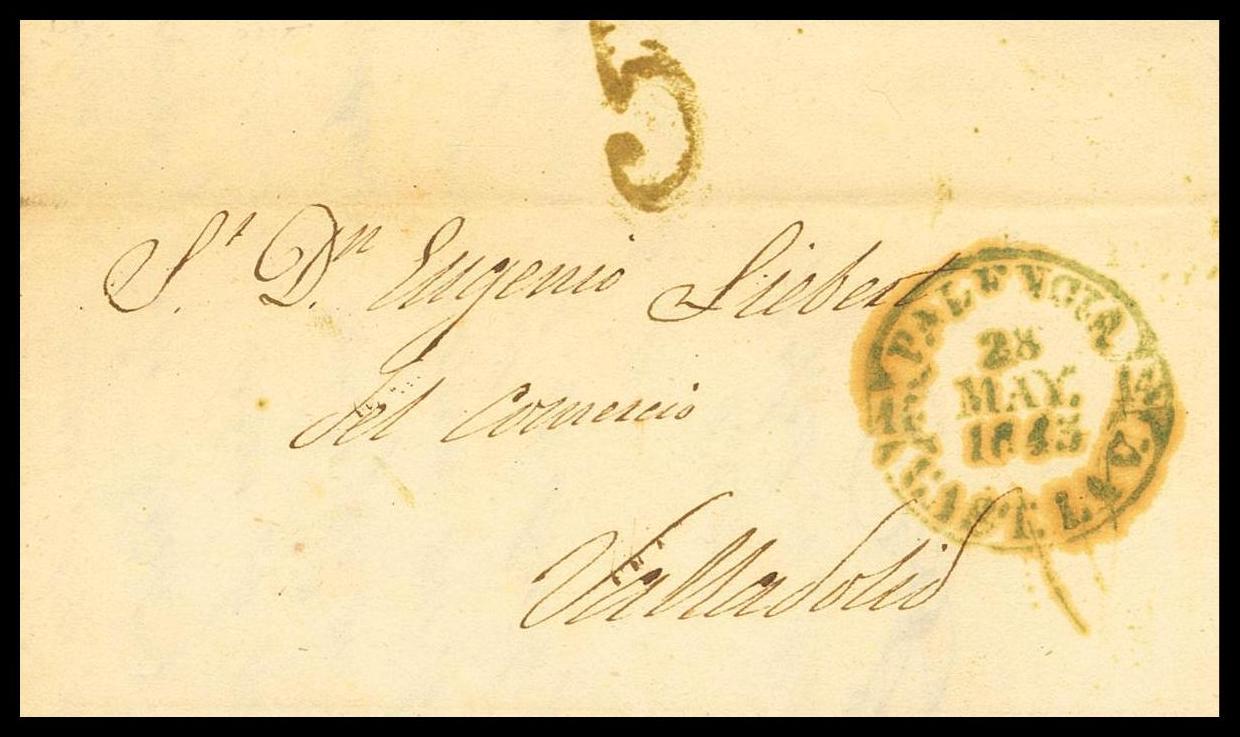 5
Sr. Dn. Eugenio Siebert
del Comercio
Valladolid
PALENCIA
28
MAY.
1845
CAST. LA V.